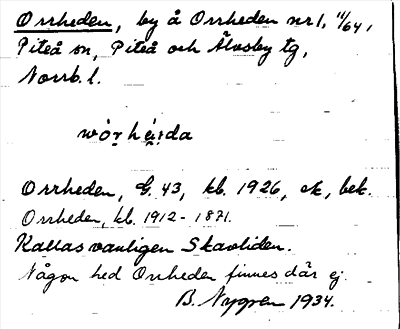 Orrheden, by å Orrheden nr 1, 11/64,
Piteå sn, Piteå och Älvsby tg,
Norrb. l.
Orrheden, G. 43, kb. 1926, ek, bek.
Orrheden, kb. 1912-1871.
Kallas vanligen Skavliden.
Någon hed Orrheden finnes där ej.
B. Nygren 1934.